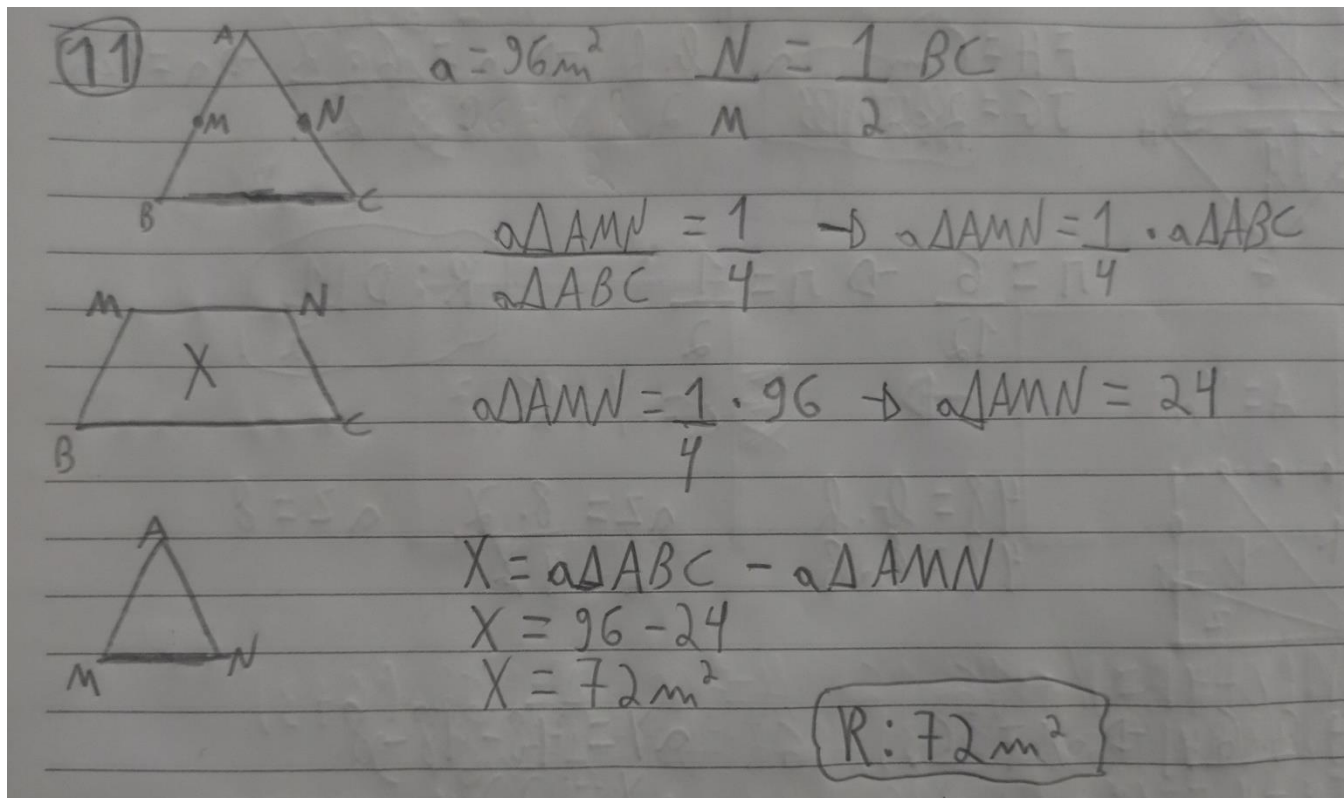 11
A
a = 96m² N/M = 1/2 BC
M N
B C
aΔAMN/aΔABC = 1/4 → aΔAMN = 1/4 · aΔABC
M N
X
B C
aΔAMN = 1/4 · 96 → aΔAMN = 24
A
M N
X = aΔABC - aΔAMN
X = 96 - 24
X = 72m²
R: 72m²